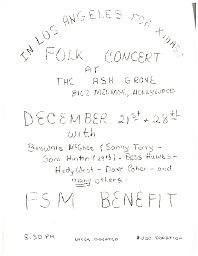 IN LOS ANGELES FOR XMAS?
FOLK CONCERT
AT
THE ASH GROVE
8162 MELROSE, HOLLYWOOD
DECEMBER 21st + 28th
with
Brownie McGhee & Sonny Terry -
Sam Hinton (28th) - Bess Hawes -
Hedy West - Dave Cohen - and
many others
FSM BENEFIT
8:30 PM
$2.00 DONATION